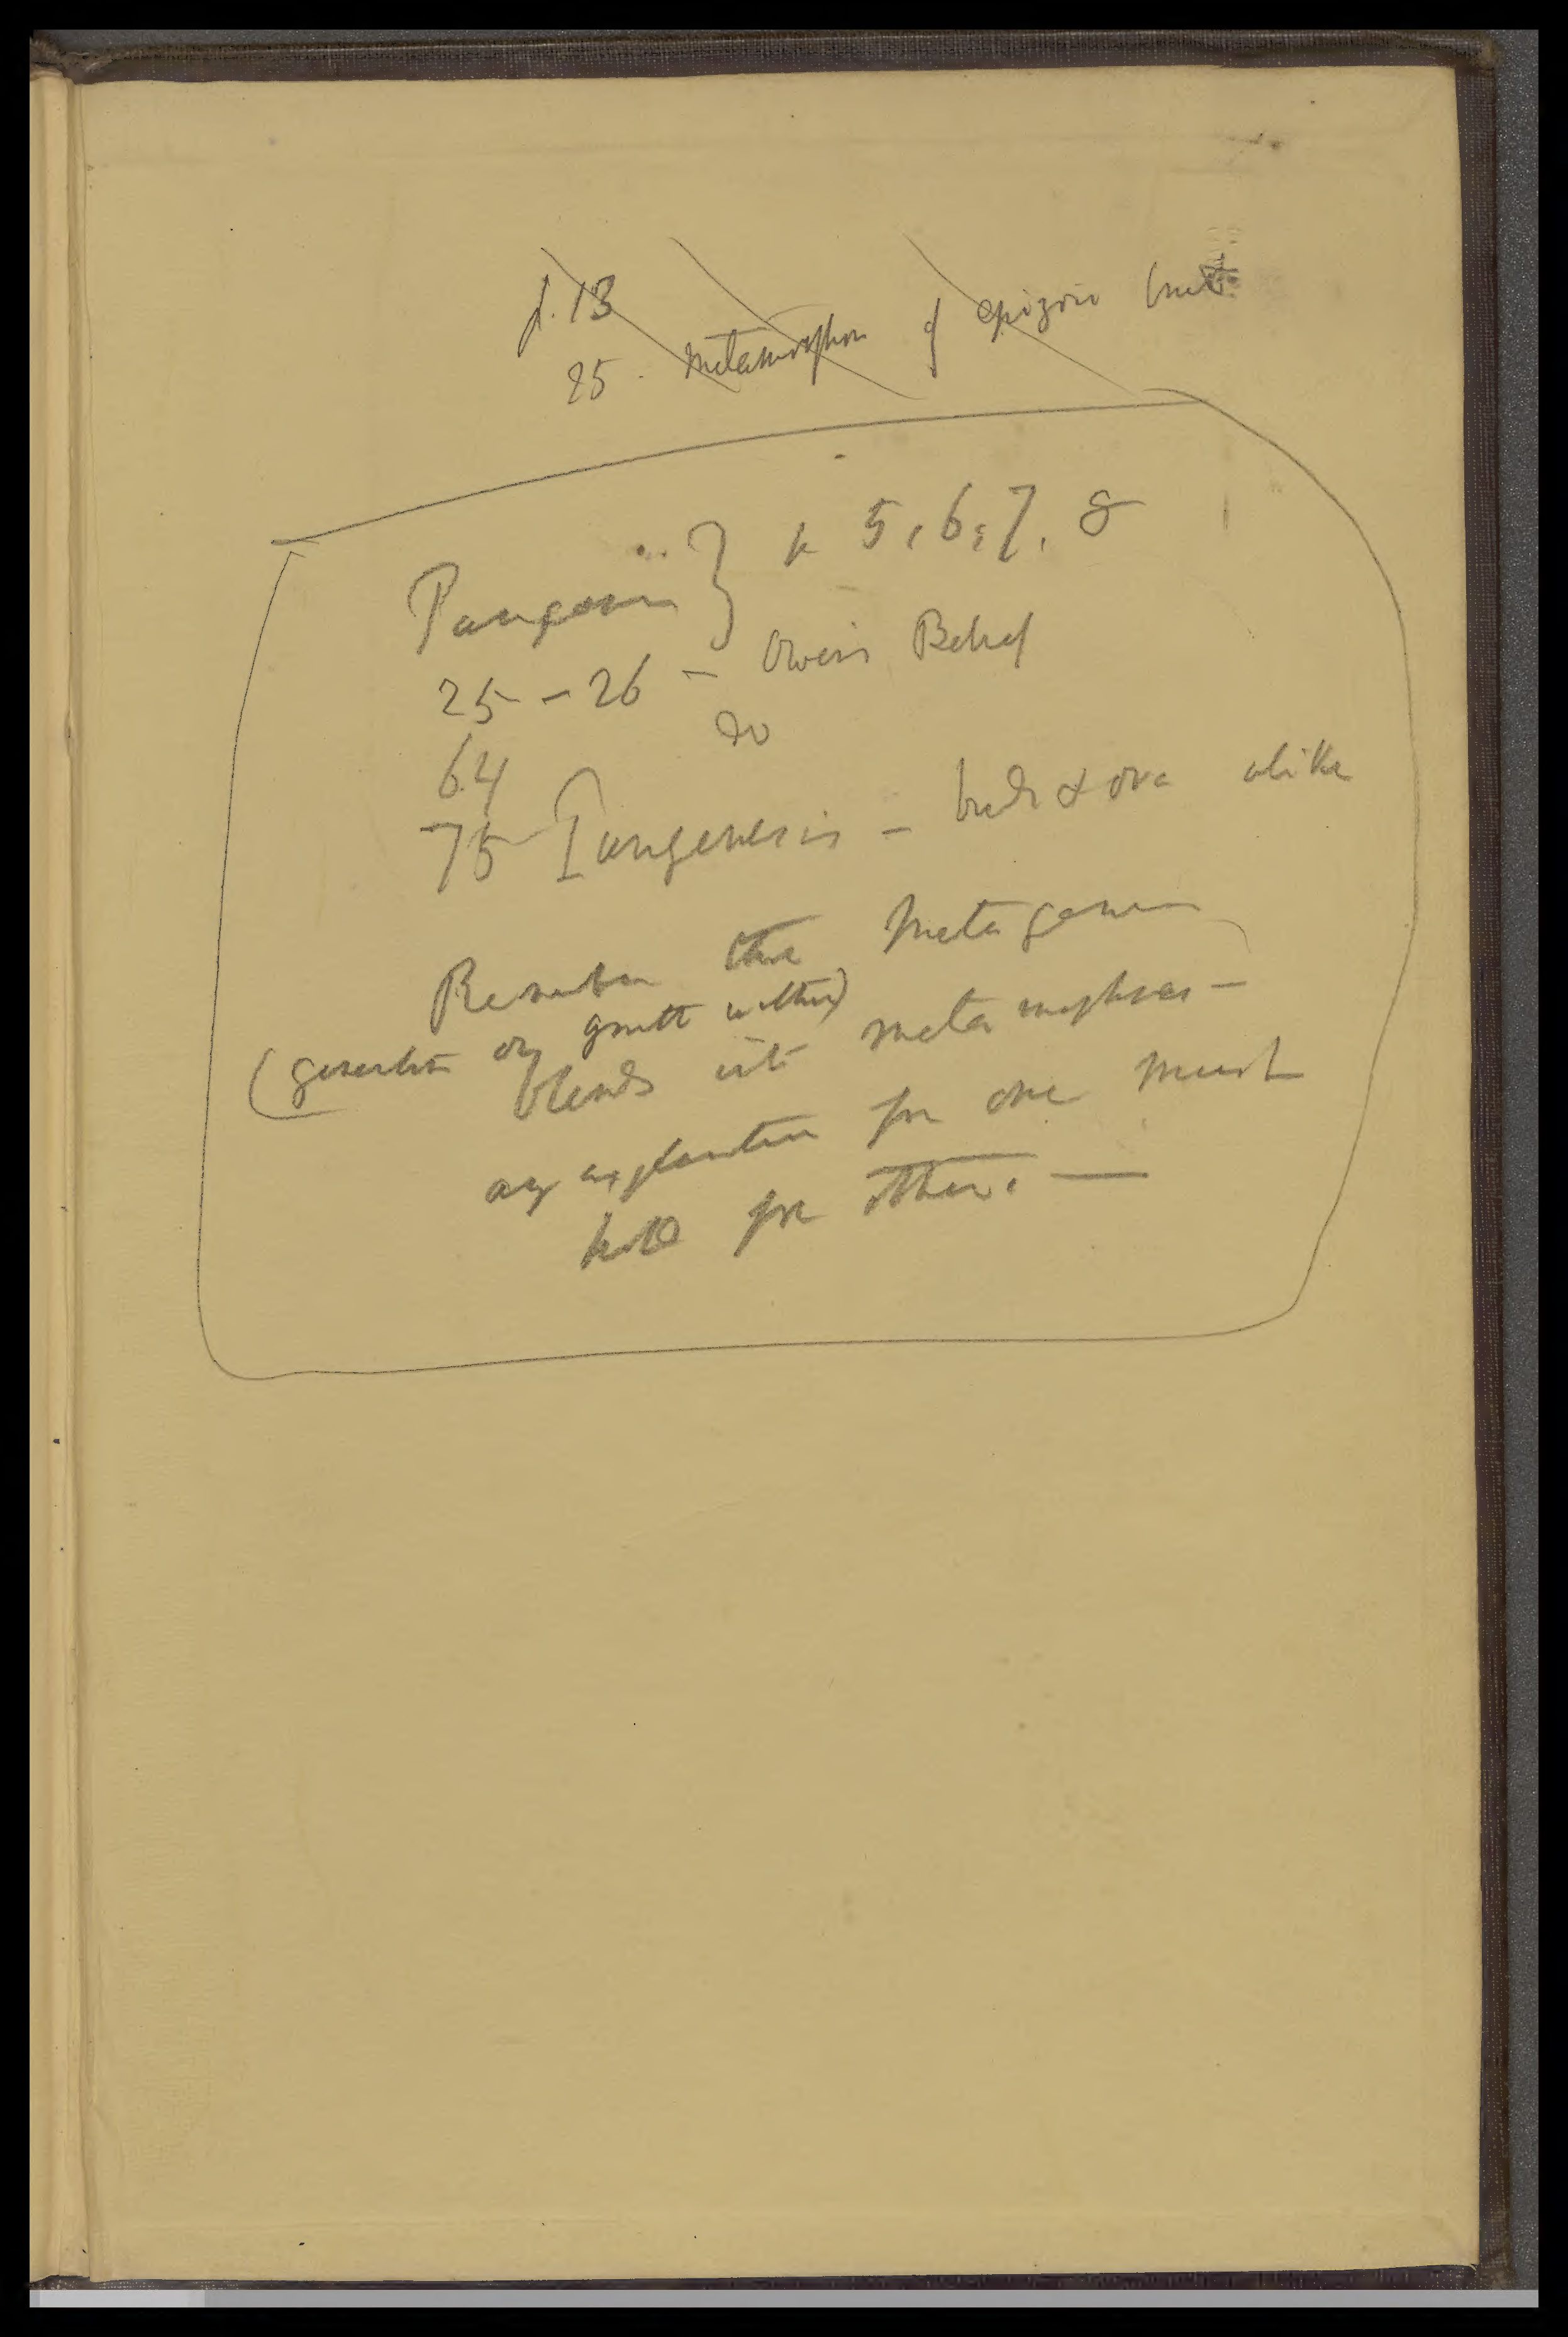 p. 13
25. Metamorphosis of epizoic Crust
Pangenesis } p 5, 6, 7, 8
25 - 26 - Owen's Belief
64 do
75 Pangenesis - buds & ova alike
Remember that Metagenesis
(generation or growth within)
blends into metamorphoses -
any explanation for one must
hold for other. —